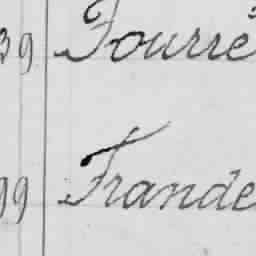 39 Fourré
99 Frande